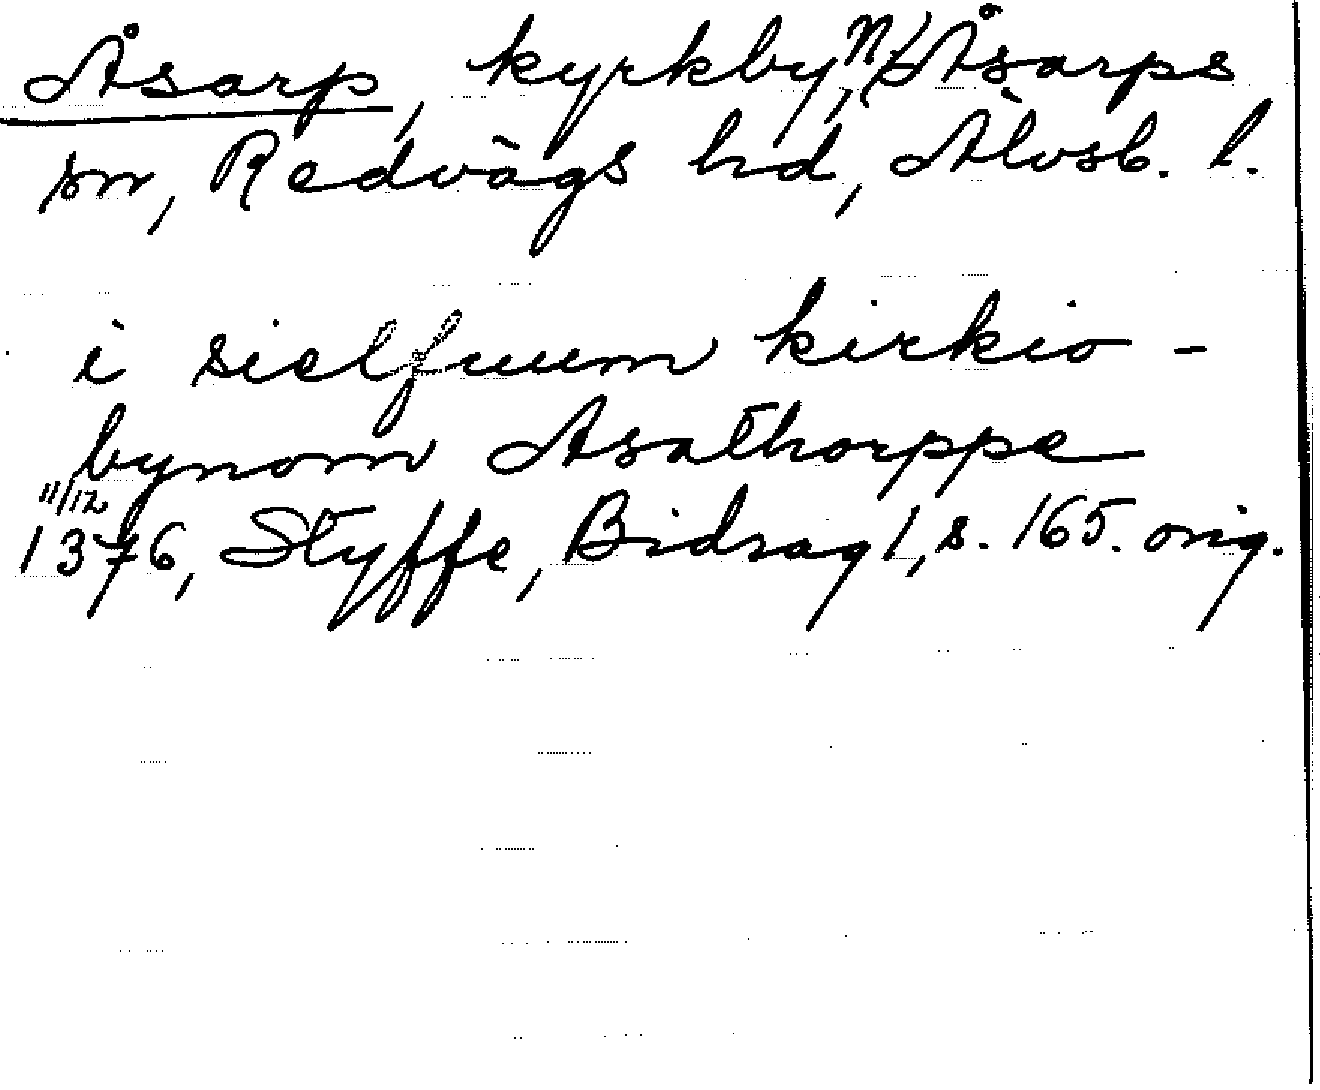 Åsarp, kyrkby, N. Åsarps
sn, Redvägs hd, Älvsb. l.
i sielfwum kirkio-
bynom Asathorppe
11/12
1376, Styffe, Bidrag 1, s. 165. orig.